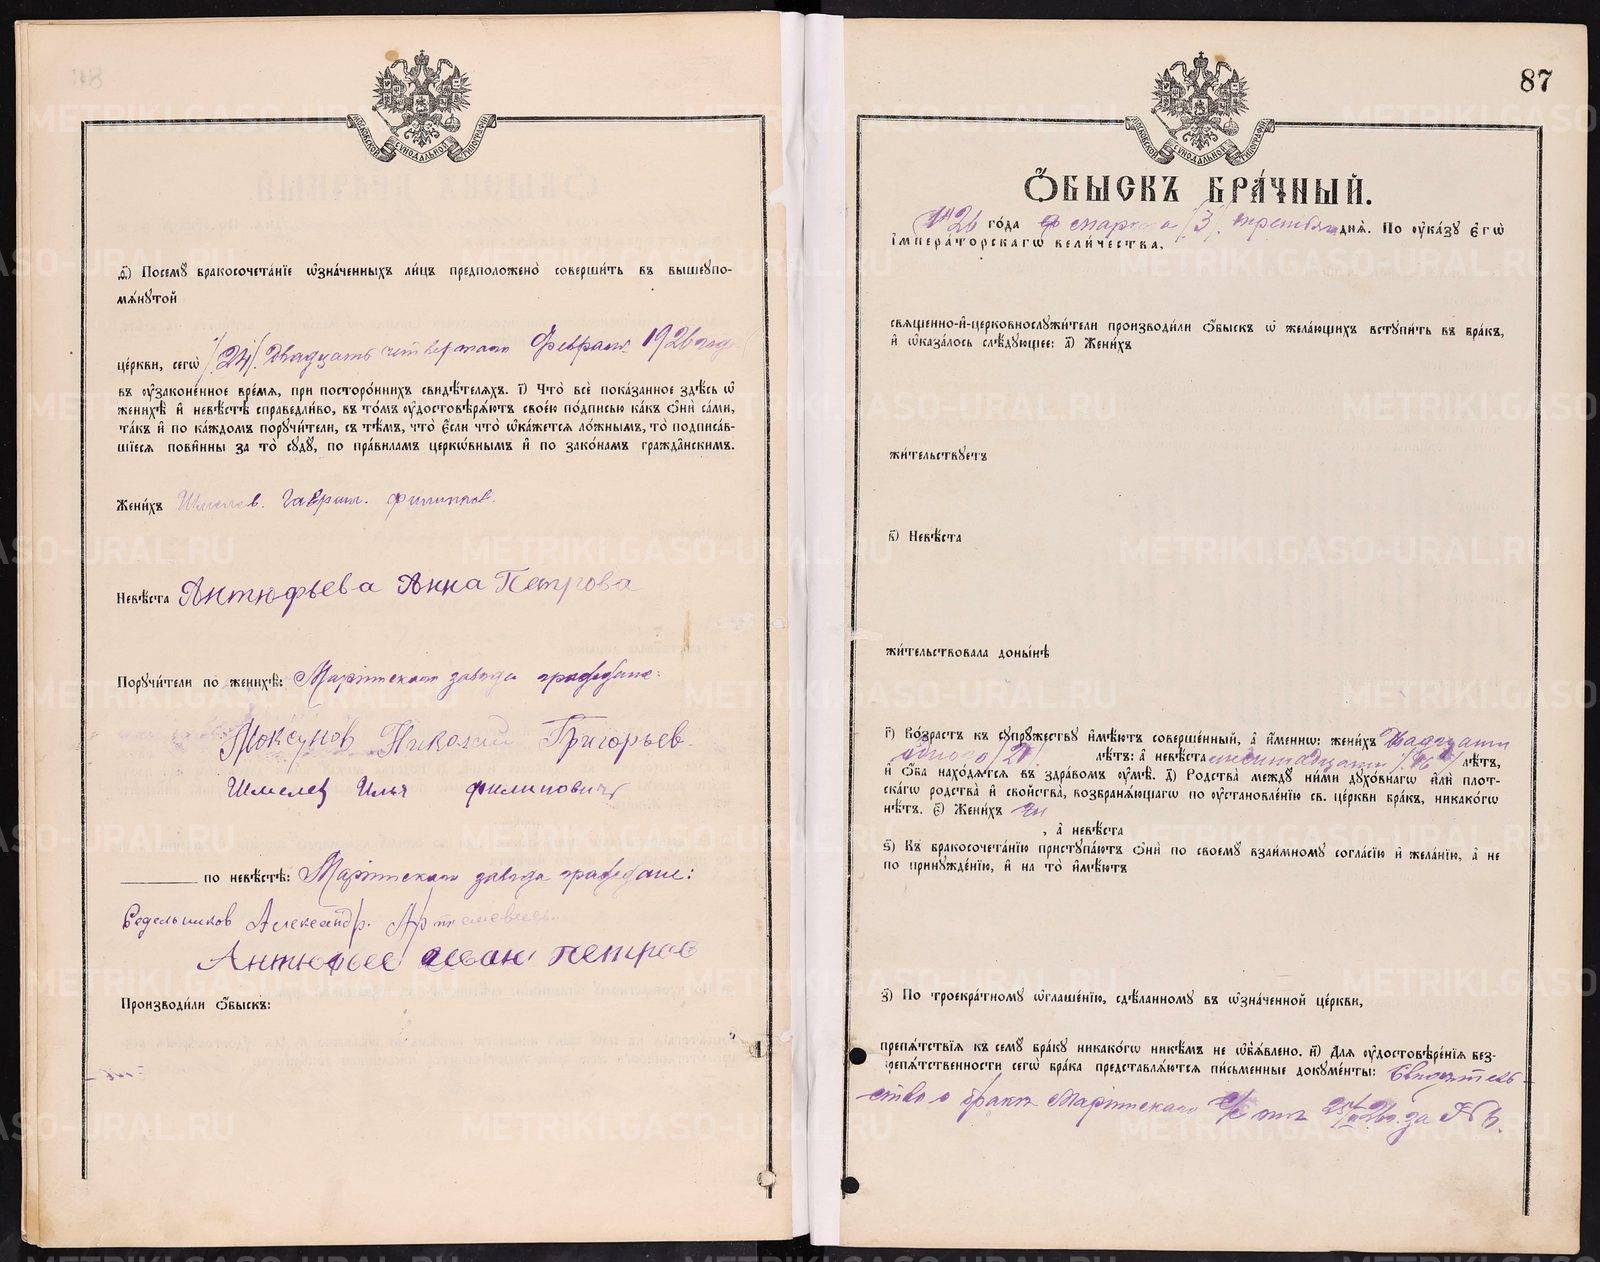 МОСКОВСКОЙ СУНОДАЛЬНОЙ ТИПОГРАФІИ
д҃і) Посемꙋ̀ бракосочета́нїе ѡ҆зна́ченныхъ ли́цъ предположено̀ соверши́ть въ вышеꙋпо-
мѧ́нꙋтой
це́ркви, сегѡ̀ /24/. двадцать четвертаго Февраля 1926 года
въ ᲂу҆зако́ненное вре́мѧ, при посторо́ннихъ свидѣ́телѧхъ. і҃) Что̀ всѐ пока́занное здѣ́сь ѡ҆
женихѣ̀ и҆ невѣ́стѣ справедли́во, въ то́мъ ᲂу҆достовѣрѧ́ютъ свое́ю по́дписью ка́къ ѻ҆нѝ са́ми,
та́къ и҆ по ка́ждомъ порꙋчи́тели, съ тѣ́мъ, что̀ є҆́сли что̀ ѡ҆ка́жетсѧ ло́жнымъ, то̀ подписа́в-
шїесѧ пови́нны за то̀ сꙋдꙋ̀, по пра́виламъ церко́внымъ и҆ по зако́намъ гражда́нскимъ.
Жени́хъ Шмелев. Гаврил. Филиппов.
Невѣ́ста Антюфьева Анна Петрова
Порꙋчи́тели по женихѣ̀: Маріинскаго завода граждане:
Николай Григорьев.
Шмелев Илья Филипович
по невѣ́стѣ: Маріинскаго завода граждане:
Седельников Александр. Артемьевич.
Антюфьев Иван Петров
Производи́ли ѻ҆́быскъ:
87
МОСКОВСКОЙ СУНОДАЛЬНОЙ ТИПОГРАФІИ
Ѻ҆́БЫСКЪ БРА́ЧНЫЙ.
1926 го́да февраля /3/. третьяго днѧ̀. По ᲂу҆ка́зꙋ є҆гѡ̀
і҆мпера́торскагѡ вели́чества,
свѧще́нно-и҆-церковнослꙋжи́тели производи́ли ѻ҆́быскъ ѡ҆ жела́ющихъ встꙋпи́ть въ бра́къ,
и҆ ѡ҆каза́лось слѣ́дꙋющее: а҃) Жени́хъ
жи́тельствꙋетъ
в҃) Невѣ́ста
жи́тельствовала доны́нѣ
г҃) Во́зрастъ къ сꙋпрꙋ́жествꙋ и҆мѣ́ютъ соверше́нный, а҆ и҆́менно: жени́хъ Двадцати
одного /21/ лѣ́тъ: а҆ невѣ́ста лѣ́тъ,
и҆ ѻ҆́ба нахо́дѧтсѧ въ здра́вомъ ᲂу҆мѣ̀. д҃) Родства̀ междꙋ̀ ни́ми дꙋхо́внагѡ и҆лѝ плот-
ска́гѡ родства̀ и҆ сво́йства, возбранѧ́ющагѡ по ᲂу҆становле́нїю св. це́ркви бра́къ, никако́гѡ
нѣ́тъ. є҃) Жени́хъ
, а҆ невѣ́ста
ѕ҃) Къ бракосочета́нїю пристꙋпа́ютъ ѻ҆нѝ по своемꙋ̀ взаи́мномꙋ согла́сїю и҆ жела́нїю, а҆ не
по принꙋжде́нїю, и҆ на то̀ и҆мѣ́ютъ
з҃) По троекра́тномꙋ ѡ҆глаше́нїю, сдѣ́ланномꙋ въ ѡ҆зна́ченной це́ркви,
препѧ́тствїѧ къ семꙋ̀ бра́кꙋ никако́гѡ никѣ́мъ не ѡ҆б̾ѧ́влено. и҃) Длѧ̀ ᲂу҆достовѣре́нїѧ без-
препѧ́тственности сегѡ̀ бра́ка представлѧ́ютсѧ пи́сьменные докꙋме́нты: Свидѣтель-
ство о бракѣ Маріинскаго с/с отъ за №
METRIKI.GASO-URAL.RU